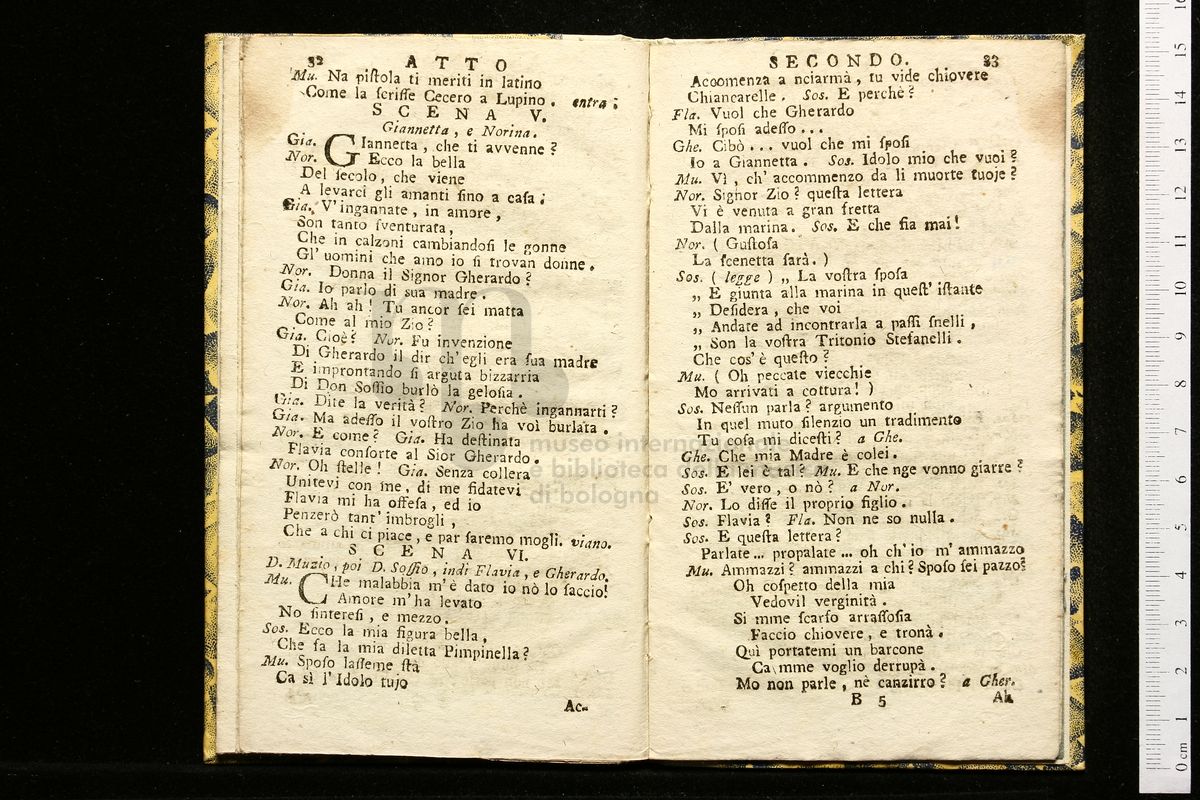 32 ATTO
Mu. Na piſtola ti meriti in latino
Come la ſcriſſe Cecero a Lupino. entra.
SCENA V.
Giannetta, e Norina.
Gia. GIannetta, che ti avvenne?
Nor. Ecco la bella
Del ſecolo, che viene
A levarci gli amanti ſino a caſa.
Gia. V'ingannate, in amore,
Son tanto ſventurata,
Che in calzoni cambiandoſi le gonne
Gl'uomini che amo io ſi trovan donne.
Nor. Donna il Signor Gherardo?
Gia. Io parlo di sua madre.
Nor. Ah ah! Tu ancor ſei matta
Come al mio Zio?
Gia. Cioè? Nor. Fu invenzione
Di Gherardo il dir ch'egli era ſua madre
E improntando ſi arguta bizzarria
Di Don Soſſio burlò la geloſia.
Gia. Dite la verità? Nor. Perchè ingannarti?
Gia. Ma adeſſo il voſtro Zio ha voi burlata.
Nor. E come? Gia. Ha deſtinata
Flavia conſorte al Sior Gherardo.
Nor. Oh ſtelle! Gia. Senza collera
Unitevi con me, di me fidatevi
Flavia mi ha offeſa, ed io
Penzerò tant'imbrogli,
Che a chi ci piace, e par faremo mogli. viano.
SCENA VI.
D. Muzio, poi D. Soſſio, indi Flavia, e Gherardo.
Mu. CHe malabbia m'è dato io nò lo ſaccio!
Amore m'ha levato
No ſintereſi, e mezzo.
Sos. Ecco la mia figura bella,
Che fa la mia diletta Pimpinella?
Mu. Spoſo laſſeme ſtà
Ca sì l'Idolo tujo
Ac-
SECONDO. 33
Accomenza a nciarmà, tu vide chiovere
Chiancarelle. Sos. E perchè?
Fla. Vuol che Gherardo
Mi ſposi adeſſo...
Ghe. Cibò... vuol che mi ſposi
Io a Giannetta. Sos. Idolo mio che vuoi?
Mu. Vì, ch'accommenzo da li muorte tuoje?
Nor. Signor Zio? queſta lettera
Vi è venuta a gran fretta
Dalla marina. Sos. E che ſia mai!
Nor. (Guſtoſa
La ſcenetta ſarà.)
Sos. (legge) „ La voſtra ſpoſa
„ E giunta alla marina in queſt'iſtante
„ Deſidera, che voi
„ Andate ad incontrarla a paſſi ſnelli,
„ Son la voſtra Tritonio Stefanelli.
Che cos'è queſto?
Mu. (Oh peccate viecchie
Mo arrivati a cottura!)
Sos. Neſſun parla? argumento
In quel muto ſilenzio un tradimento
Tu coſa mi diceſti? a Ghe.
Ghe. Che mia Madre è colei.
Sos. E lei è tal? Mu. E che nge vonno giarre?
Sos. E' vero, o nò? a Nor.
Nor. Lo diſſe il proprio figlio.
Sos. Flavia? Fla. Non ne so nulla.
Sos. E queſta lettera?
Parlate... propalate... oh ch'io m'ammazzo
Mu. Ammazzi? ammazzi a chi? Spoſo ſei pazzo?
Oh coſpetto della mia
Vedovil verginità.
Si mme ſcarſo arraſſoſia
Faccio chiovere, e tronà.
Quì portatemi un barcone
Ca mme voglio derrupà.
Mo non parle, nè canzirro? a Gher.
B 5 Ah
museo internazionale
e biblioteca della musica
di bologna
0 cm 1 2 3 4 5 6 7 8 9 10 11 12 13 14 15 16